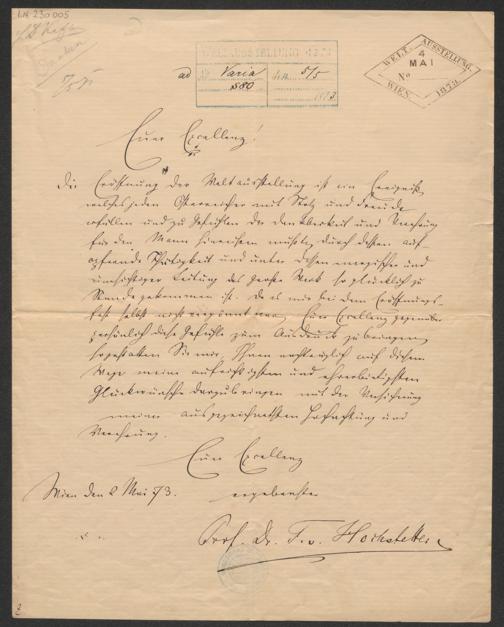 I.N. 230.005
5/5 73
WELTAUSSTELLUNG 1873
ad Nr. Varia dto. 5/5
580 1873.
WELT-AUSSTELLUNG
4
MAI
No
WIEN 1873.
Euer Excellenz!
Die Eröffnung der Weltausstellung ist ein Ereigniß,
welches jeden Österreicher mit Stolz und Freude
erfüllen und zu Gefühlen der Dankbarkeit und Verehrung
für den Mann hinreißen mußte, durch dessen auf-
opfernde Thätigkeit und unter dessen energischer und
umsichtiger Leitung das große Werk so glücklich zu
Stande gekommen ist. Da es mir bei dem Eröffnungs-
fest selbst nicht vergönnt war, Euer Excellenz gegenüber
persönlich diese Gefühle zum Ausdruck zu bringen,
so gestatten Sie mir, Ihnen nachträglich auf diesem
Wege meine aufrichtigsten und ehrerbietigsten
Glückwünsche darzubringen mit der Versicherung
meiner ausgezeichnetsten Hochachtung und
Verehrung.
Euer Excellenz
Wien den 2 Mai 73. ergebenster
Prof. Dr. F. v. Hochstetter